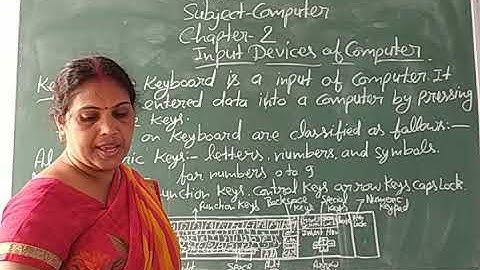 Subject-Computer
Chapter-2
Input Devices of Computer
Ke Keyboard is a input of Computer. It
entered data into a computer by pressing
Keys.
on Keyboard are classified as follows:-
Al ic Keys:- letters, numbers, and symbols.
for numbers 0 to 9
unction Keys, Control Keys arrow Keys Caps Lock.
Function Keys Backspace Keys Special Keys Numeric Keypad
Space Alt Arrow